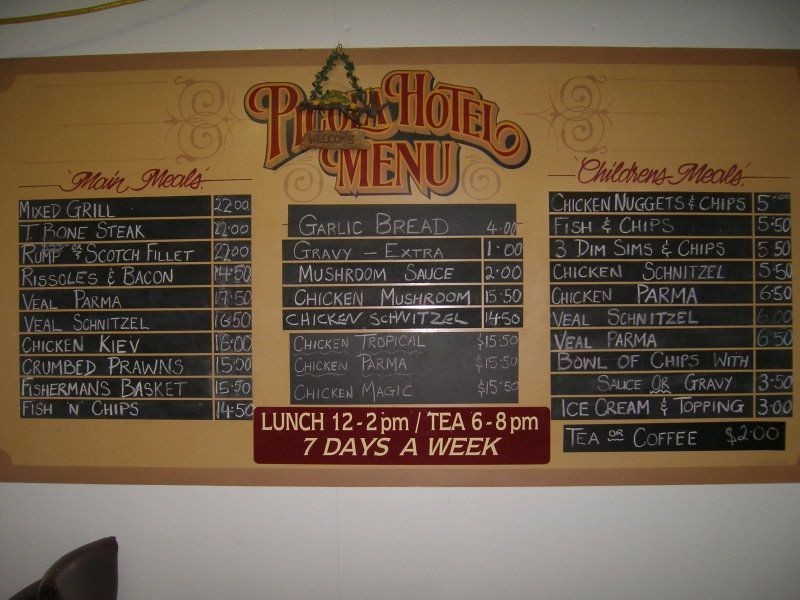 PICOLA HOTEL
WELCOME
MENU
Main Meals
MIXED GRILL 22.00
T. BONE STEAK 22.00
RUMP OR SCOTCH FILLET 22.00
RISSOLES & BACON 14.50
VEAL PARMA 17.50
VEAL SCHNITZEL 16.50
CHICKEN KIEV 16.00
CRUMBED PRAWNS 15.00
FISHERMANS BASKET 15.50
FISH 'N' CHIPS 14.50
GARLIC BREAD 4.00
GRAVY - EXTRA 1.00
MUSHROOM SAUCE 2.00
CHICKEN MUSHROOM 15.50
CHICKEN SCHNITZEL 14.50
CHICKEN TROPICAL $15.50
CHICKEN PARMA $15.50
CHICKEN MAGIC $15.50
LUNCH 12-2pm / TEA 6-8pm
7 DAYS A WEEK
Childrens Meals
CHICKEN NUGGETS & CHIPS 5.00
FISH & CHIPS 5.50
3 DIM SIMS & CHIPS 5.50
CHICKEN SCHNITZEL 5.50
CHICKEN PARMA 6.50
VEAL SCHNITZEL 6.00
VEAL PARMA 6.50
BOWL OF CHIPS WITH
SAUCE OR GRAVY 3.50
ICE CREAM & TOPPING 3.00
TEA OR COFFEE $2.00